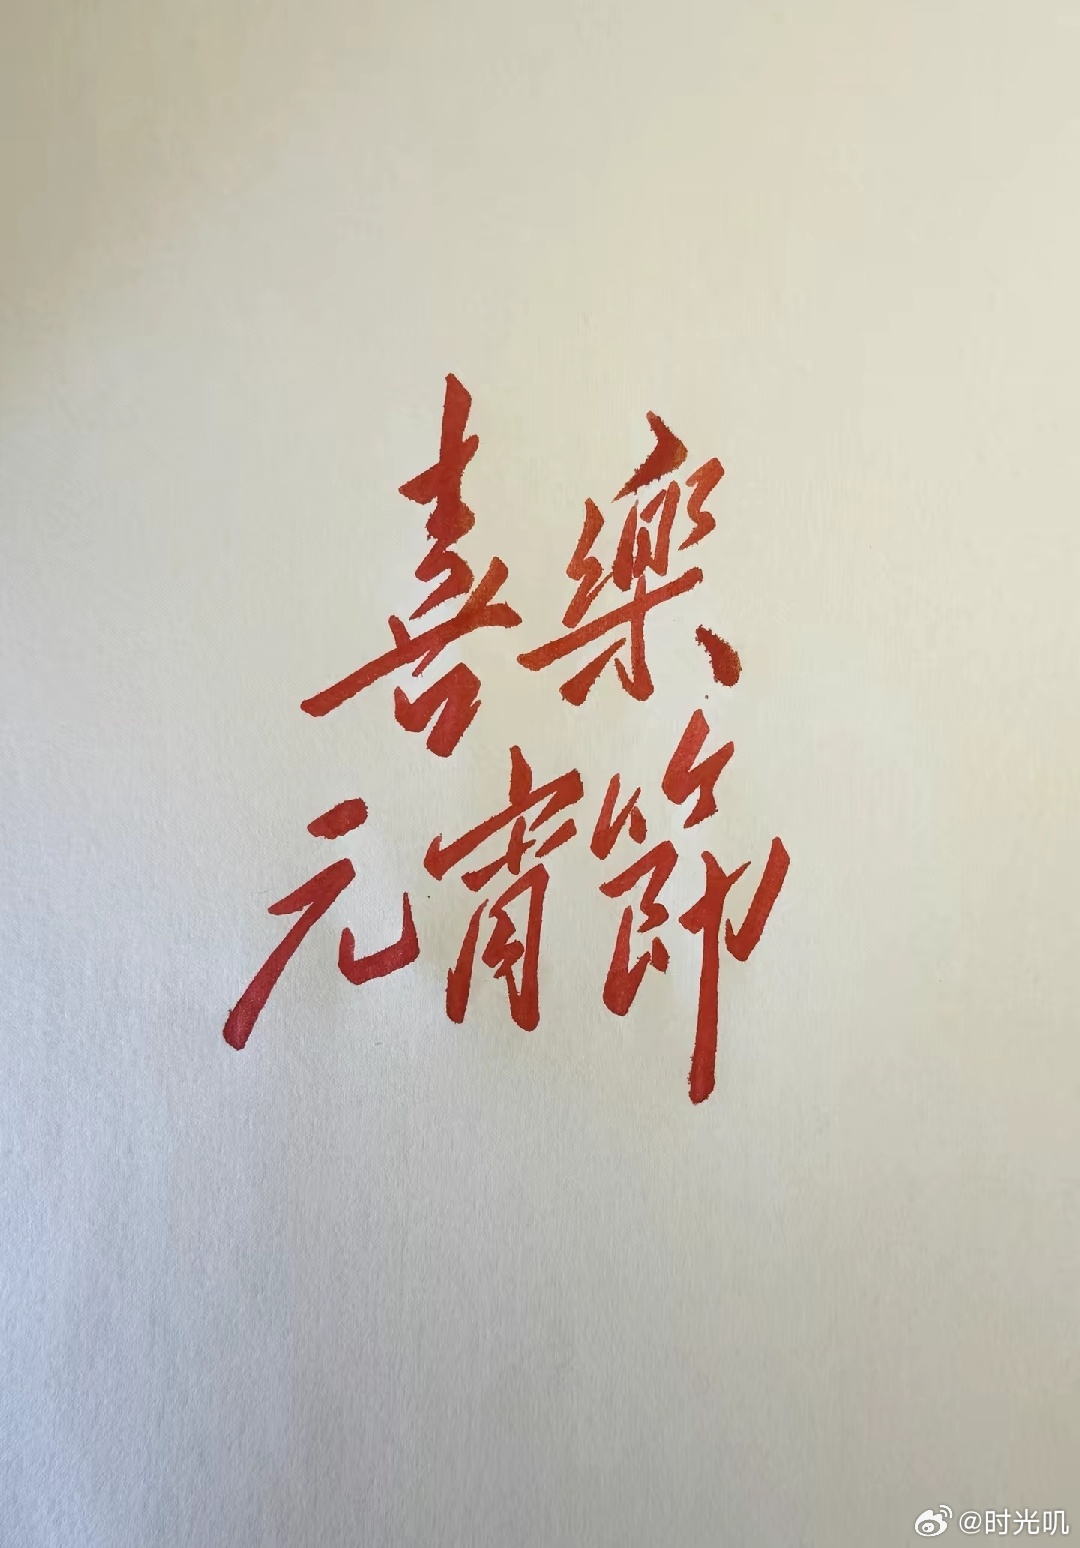 喜樂
元宵節
@时光叽